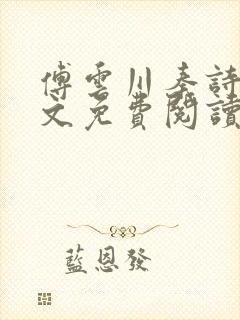 傅雲川秦詩
文免費閱讀
藍恩發